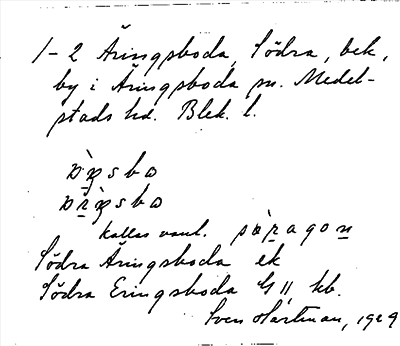 1-2 Åringsboda, Södra, bek,
by i Åringsboda sn. Medel-
stads hd. Blek. l.
kallas vanl.
Södra Åringsboda ek
Södra Eringsboda G 11 kb.
Sven Hartman, 1929